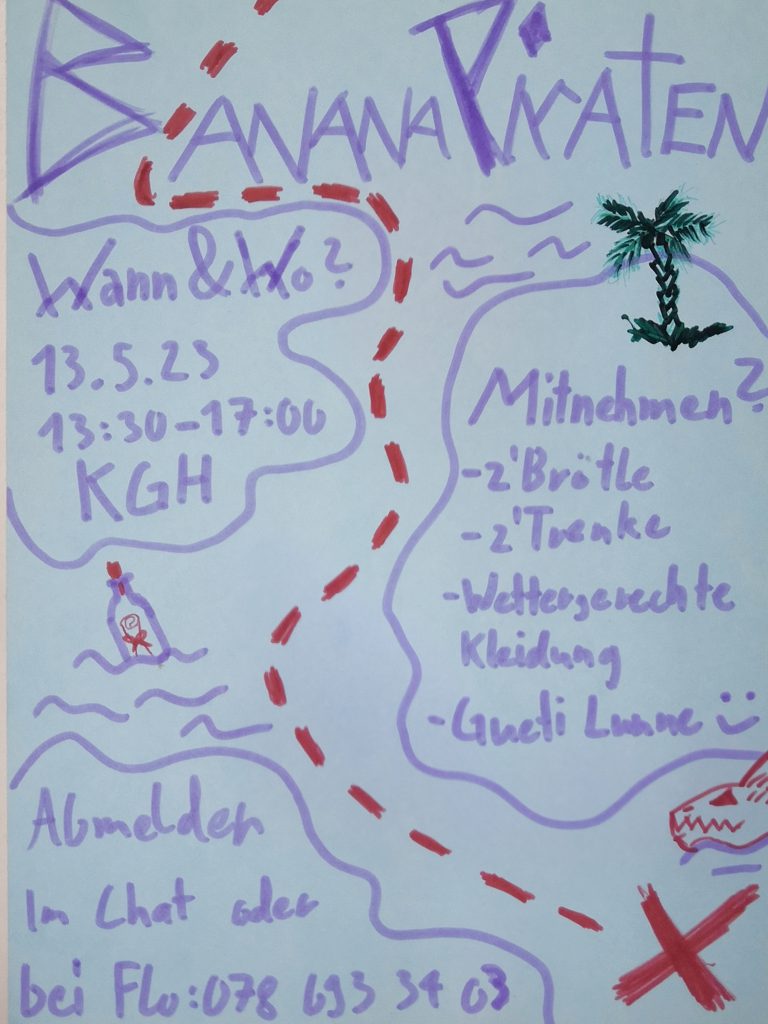 BananaPiraten
Wann & Wo?
13.5.23
13:30-17:00
KGH
Mitnehmen?
-z'Brötle
-z'Trenke
-Wettergerechte
Kleidung
-Gueti Lunne :)
Abmelden
Im Chat oder
bei Flo:078 693 34 03